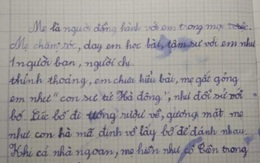 Mẹ là người đồng hành với em trong mọi việc.
Mẹ chăm sóc, dạy em học bài, tâm sự với em như
1 người bạn, người chị.
thỉnh thoảng, em chưa hiểu bài, mẹ gắt gỏng
em như "con sư tử Hà đông", như đối sử với
bố. Lúc bố đi tăng rượu về, gương mặt mẹ
như con hà mã định vồ lấy bố để đánh nhau.
Khi cả nhà ngoan, mẹ hiền như cô tiên trong